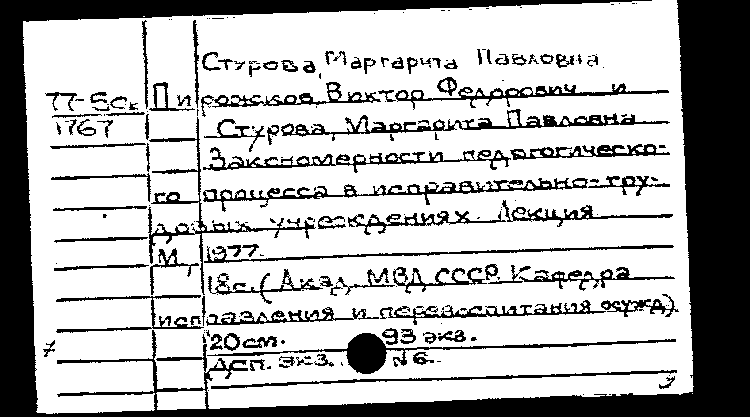 Стурова, Маргарита Павловна
77-5ск Пирожков, Виктор Федорович и
1767 Стурова, Маргарита Павловна
Закономерности педагогическо-
го процесса в исправительно-тру-
довых учреждениях. Лекция
М., 1977.
18с. (Акад. МВД СССР. Кафедра
исправления и перевоспитания осужд.)
20 см. 93 экз.
ДСП. Экз. №6.